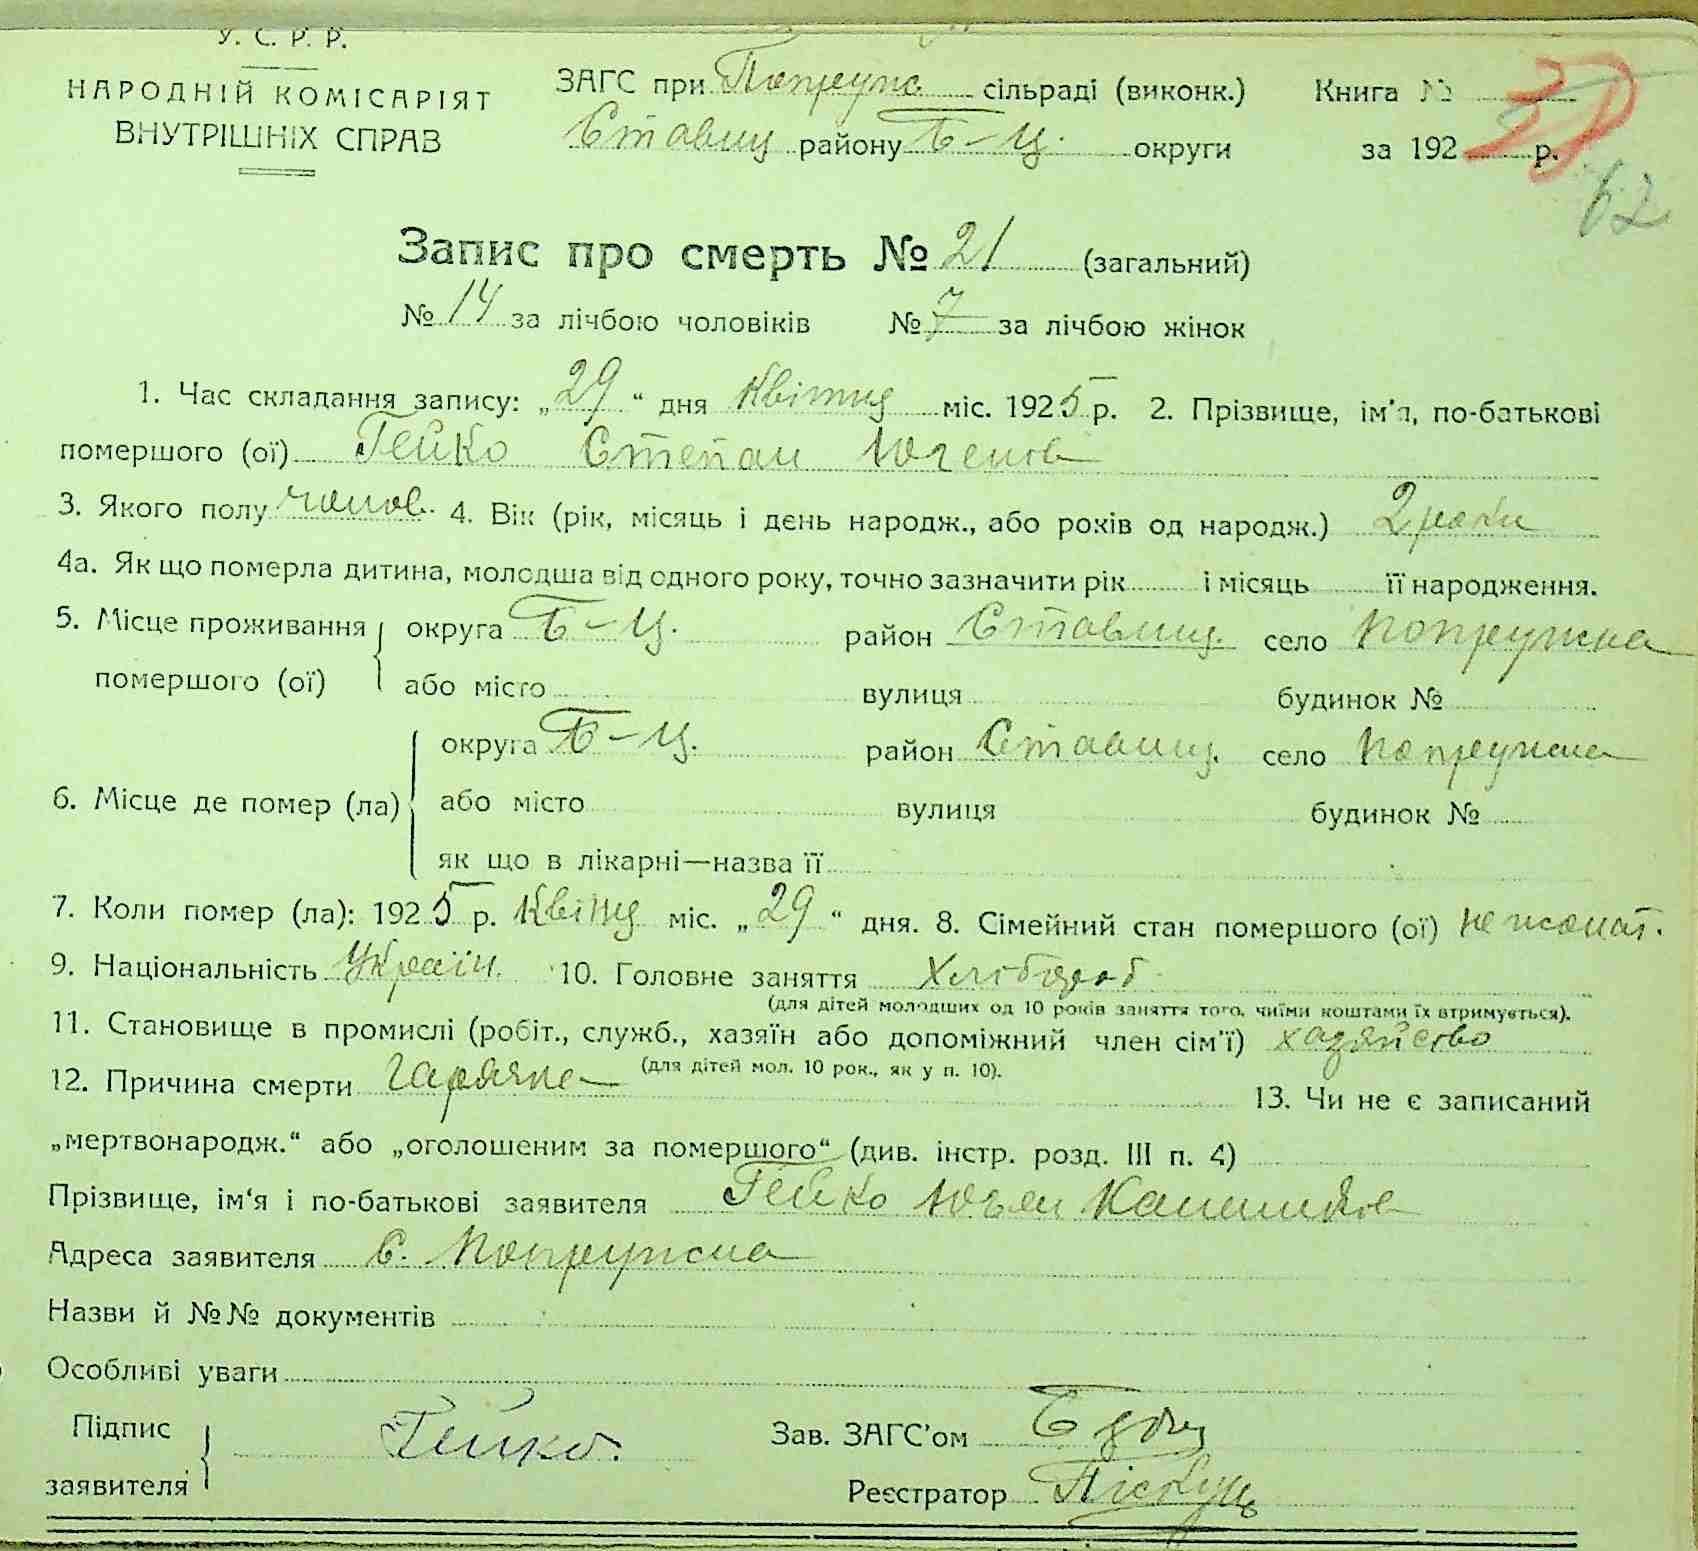 У. С. Р. Р.
НАРОДНІЙ КОМІСАРІЯТ
ВНУТРІШНІХ СПРАВ
ЗАГС при Попружн. сільраді (виконк.) Книга №
Ставищ району Б-Ц. округи за 192 р.
62
Запис про смерть № 21 (загальний)
№ 14 за лічбою чоловіків № 7 за лічбою жінок
1. Час складання запису: „29“ дня Квітня міс. 1925 р. 2. Прізвище, ім'я, по-батькові
помершого (ої) Гейко Степан
3. Якого полу чолов. 4. Вік (рік, місяць і день народж., або років од народж.) 2 роки
4а. Як що померла дитина, молодша від одного року, точно зазначити рік і місяць її народження.
5. Місце проживання округа Б-Ц. район Ставищ. село Попружна
помершого (ої) або місто вулиця будинок №
округа Б-Ц. район Ставищ. село Попружна
6. Місце де помер (ла) або місто вулиця будинок №
як що в лікарні—назва її
7. Коли помер (ла): 1925 р. Квітня міс. „29“ дня. 8. Сімейний стан помершого (ої) не жонат.
9. Національність Україн. 10. Головне заняття Хлібороб
(для дітей молодших од 10 років заняття того, чиїми коштами їх втримується).
11. Становище в промислі (робіт., служб., хазяїн або допоміжний член сім'ї) хазяйство
(для дітей мол. 10 рок., як у п. 10).
12. Причина смерти гарячка 13. Чи не є записаний
„мертвонародж.“ або „оголошеним за помершого“ (див. інстр. розд. III п. 4)
Прізвище, ім'я і по-батькові заявителя Гейко
Адреса заявителя с. Попружна
Назви й №№ документів
Особливі уваги
Підпис
заявителя Гейко.
Зав. ЗАГС'ом
Реєстратор